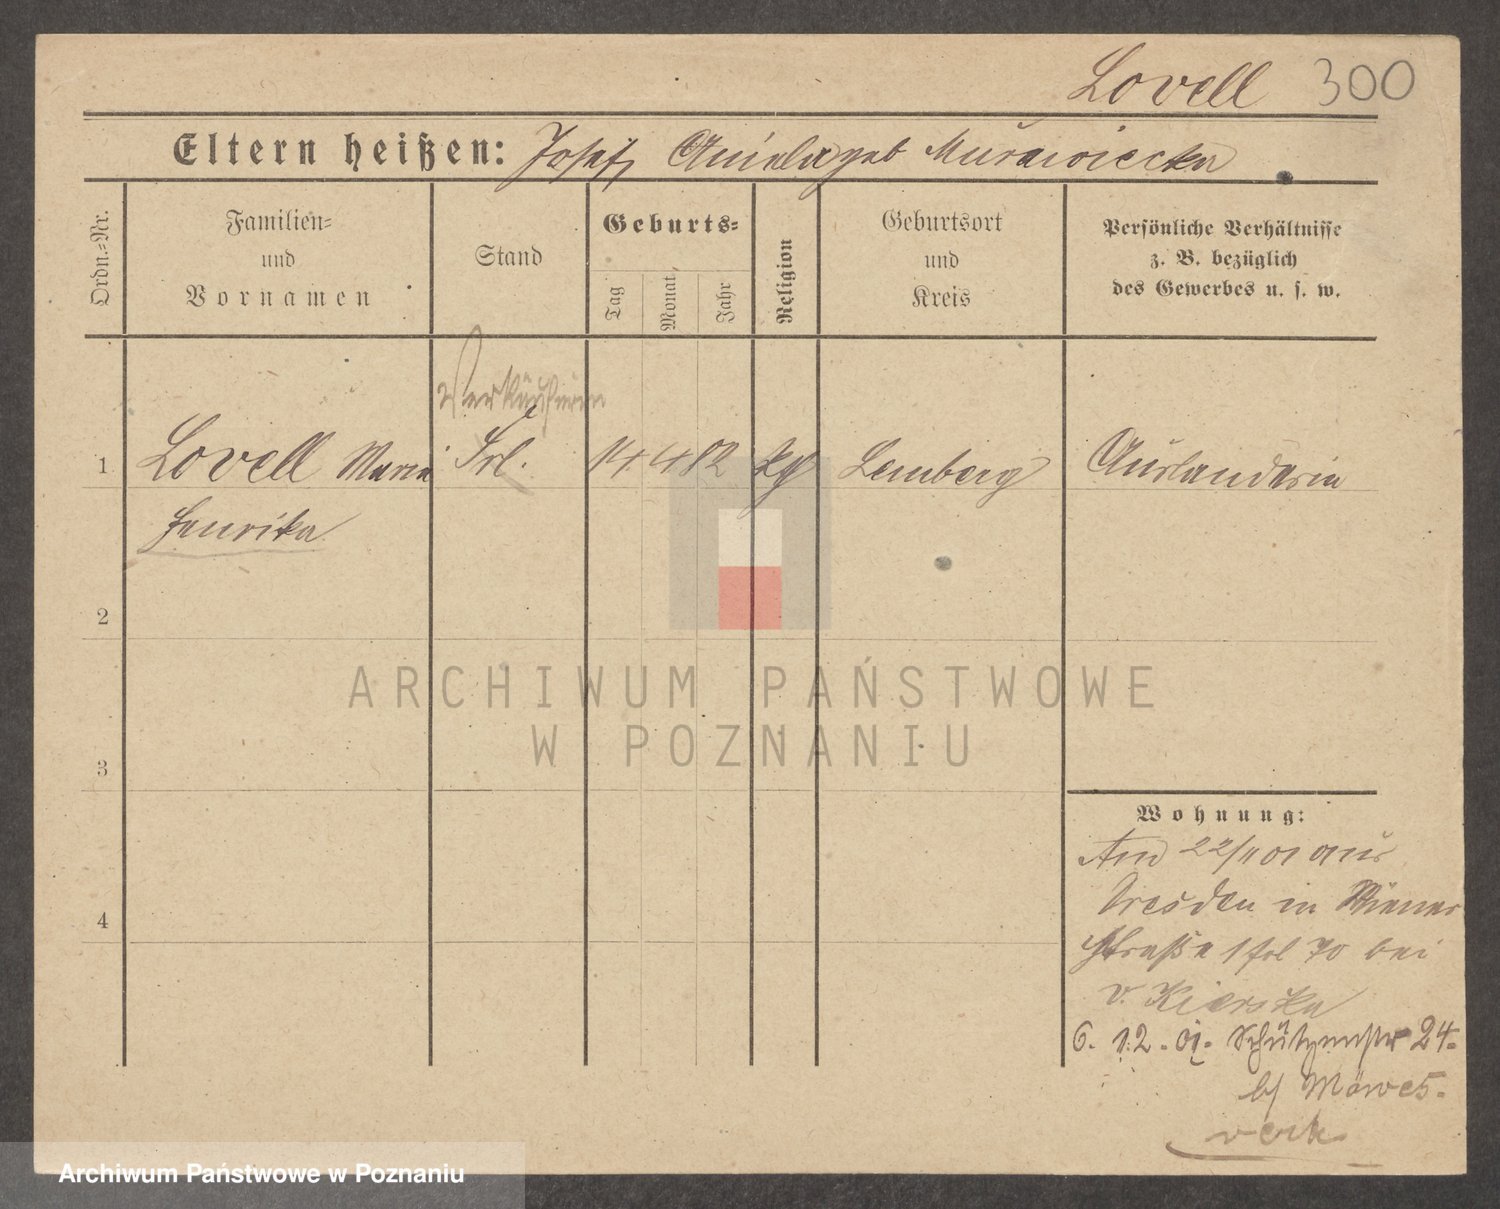 Lovell 300
Eltern heißen: Josef, Aniela geb Murawiecka
Ordn.=Nr.
Familien=
und
Vornamen
Stand
Geburts=
Tag
Monat
Jahr
Religion
Geburtsort
und
Kreis
Persönliche Verhältnisse
z. B. bezüglich
des Gewerbes u. s. w.
Verkäuferin
1 Lovell Maria Frl. 14 4 82 kgl Lemberg Ausländerin
Henrika
2
3
4
ARCHIWUM PAŃSTWOWE
W POZNANIU
Wohnung:
Am 22/11 01 aus
Dresden in Wiener
Straße 1 bei
v. Kierska
6. 12. 01. Schützenstr 24.
b/ Möwes.
Archiwum Państwowe w Poznaniu